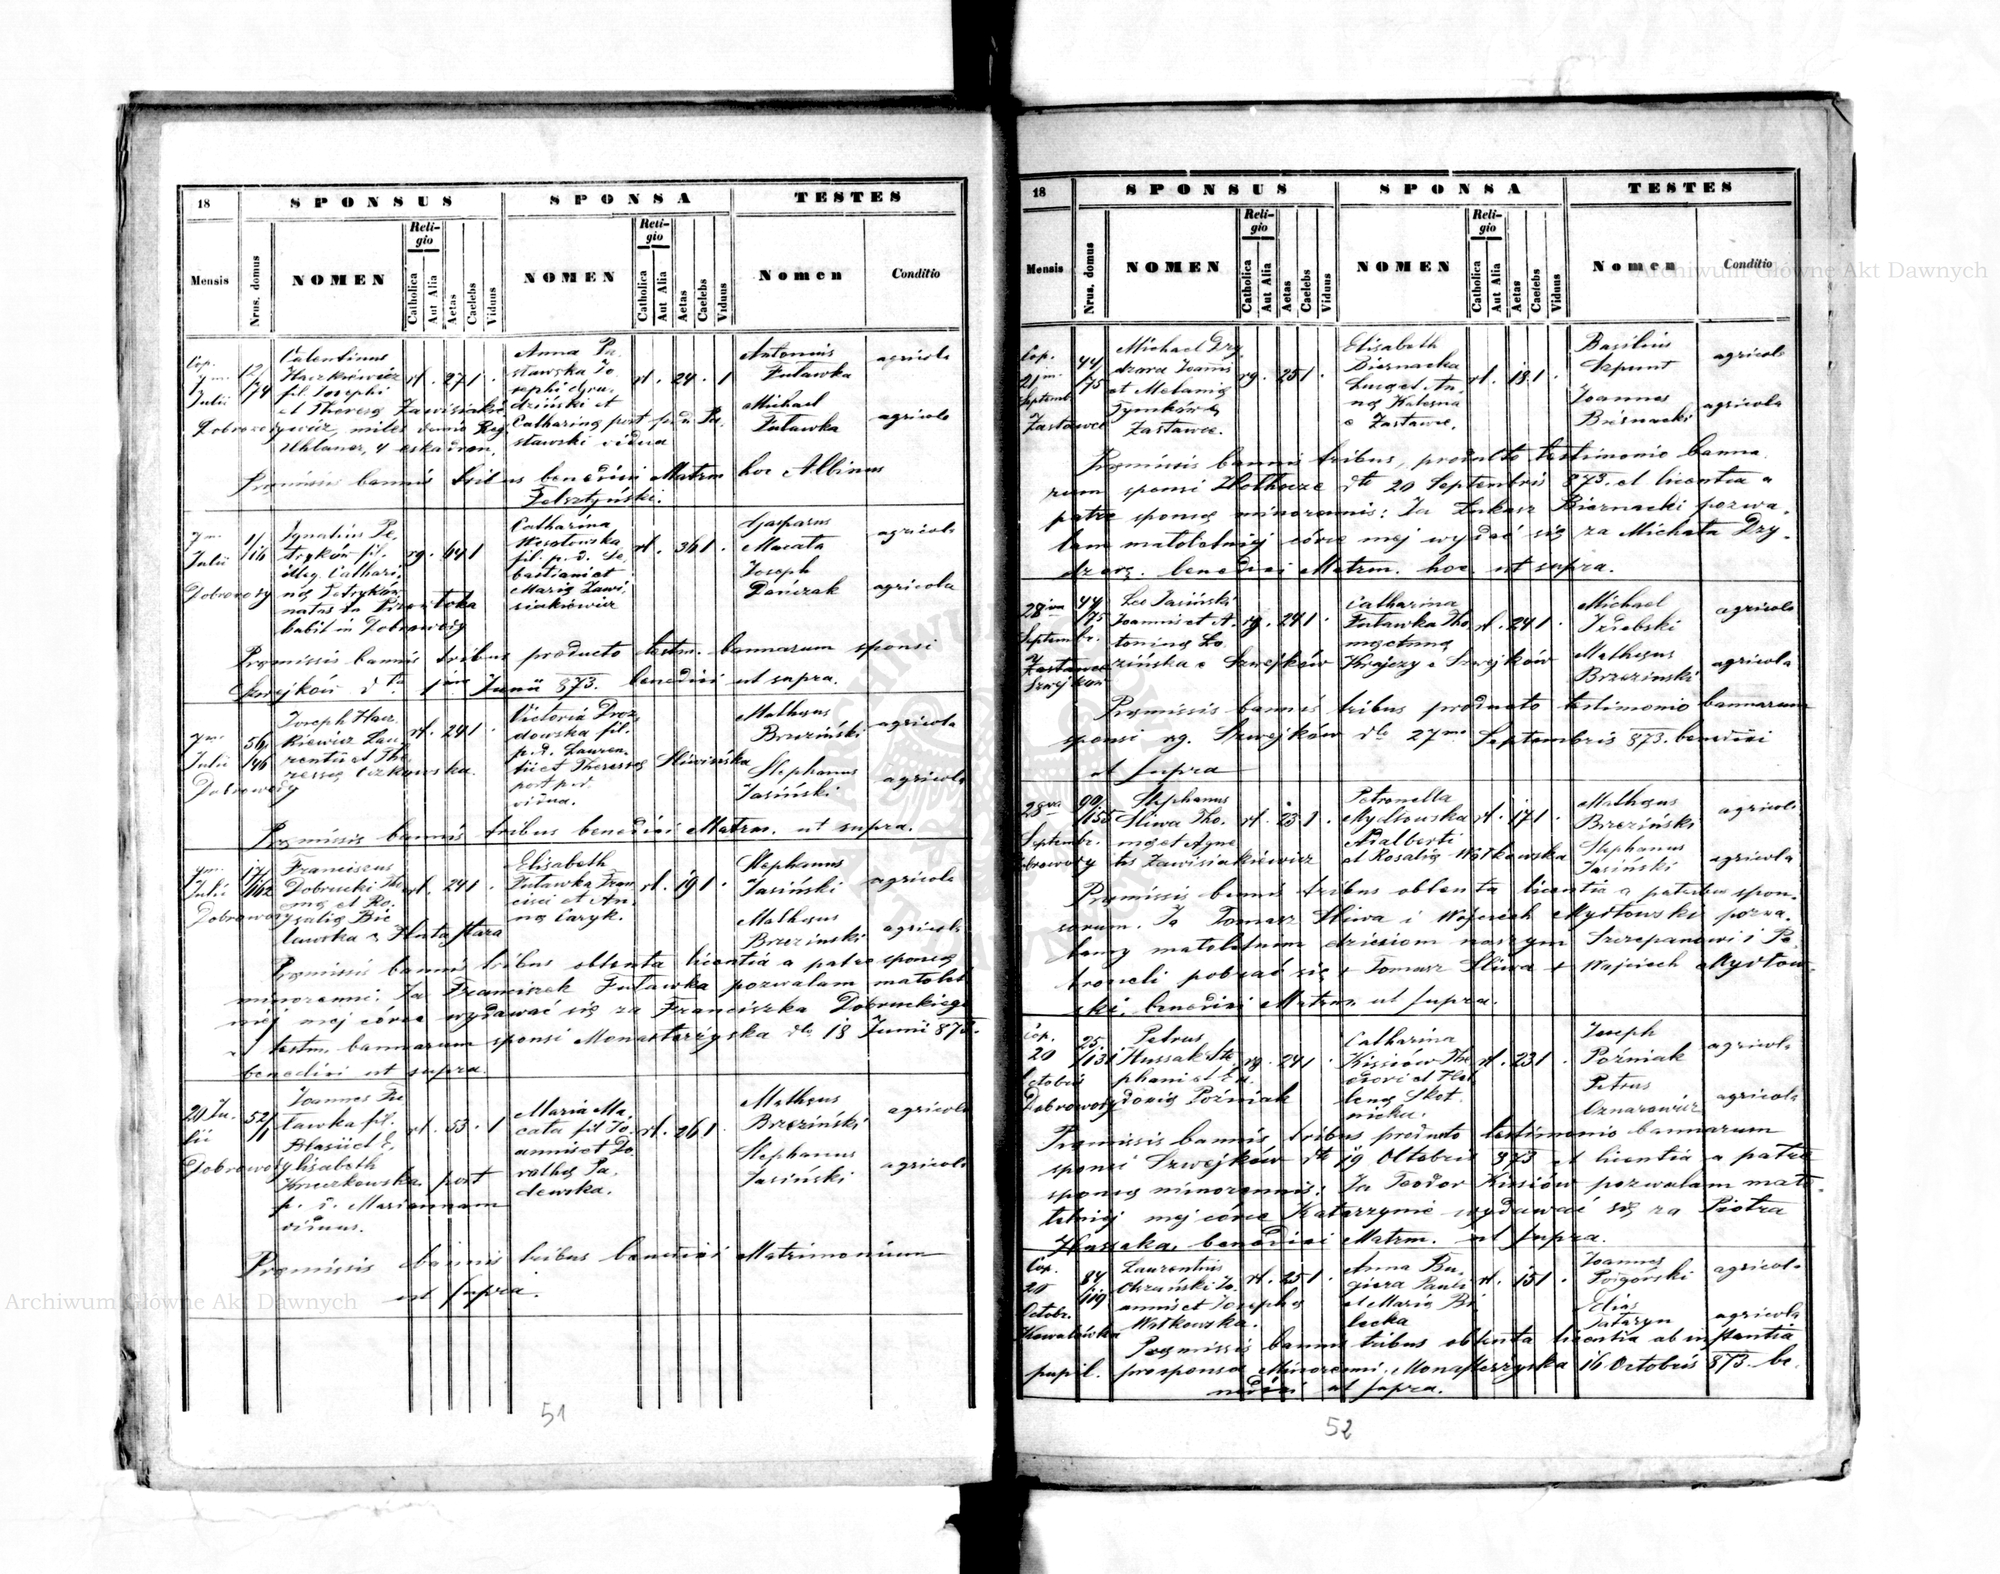 18
SPONSUS
SPONSA
TESTES
Mensis
Nrus. domus
NOMEN
Reli-
gio
Catholica
Aut Alia
Aetas
Caelebs
Viduus
NOMEN
Reli-
gio
Catholica
Aut Alia
Aetas
Caelebs
Viduus
Nomen
Conditio
Cop.
Julii
Dobrowody
12/
174
Valentinus
Haczkiewicz
fil. Josephi
et Theresa Zawisiakie
wicz, miles
Uhlanor, 4 eskadron,
rl. 27 1.
Anna Pa
stawska Jo
sephi Gru
dziński et
Catharina post p. d. Pa
stawski vidua
rl. 24. 1
Antonius
Futawka
agricola
Michael
Futawka
agricola
Praemissis bannis tribus benedixi Matrm hoc Albinus
Felsztyński.
Julii
Dobrowody
11/
116
Ignatius Pe
trykow fil.
illeg. Cathari
na Petryków
natus in
habit in Dobrowody
rg. 64 1
Catharina
Wesołowska
fil. p. d. Se
bastiani et
Maria Zawi
siakiewicz
rl. 36 1.
Gasparus
Macata
agricola
Joseph
Panczak
agricola
Praemissis bannis tribus producto testm. bannorum sponsi
Szwejków dto 1ma Junii 873. benedixi ut supra.
Julii
Dobrowody
56/
146
Joseph Hacz
kiewicz Lau
rentii et The
resia Czekowska
rl. 24 1
Victoria Droz
dowska fil.
p. d. Lauren
tii et Theresia Śliwińska
post p. d.
vidua.
Matheus
Brzeziński
agricola
Stephanus
Jasiński
agricola
Praemissis bannis tribus benedixi Matrm. ut supra.
Julii
Dobrowody
17/
162
Franciscus
Dobrucki Tho
ma et Ro
salia Bie
lawska e Huta stara
rl. 24 1
Elisabeth
Futawka Fran
cisci et An
na Caryk.
rl. 19 1.
Stephanus
Jasiński
agricola
Matheus
Brzezinski
agricola
Praemissis bannis tribus obtenta licentia a patre sponsa
minorenni: Ja Franciszek Futawka pozwalam matolet
niej mej córce wydawać się za Franciszka Dobruckiego
et testm. bannorum sponsi Monasterzyska dto 18 Junii 873.
benedixi ut supra.
20 Ju
lii
Dobrowody
52/
1
Joannes Fu
tawka fil.
Blasii et E
lisabeth
Kruczkowska post
p. d. Mariannam
viduus.
rl. 53. 1
Maria Ma
cata fil. Jo
annis et Do
rothea Pa
dewska.
rl. 26 1.
Matheus
Brzeziński
agricola
Stephanus
Jasiński
agricola
Praemissis bannis tribus benedixi Matrimonium
ut supra.
51
18
SPONSUS
SPONSA
TESTES
Mensis
Nrus. domus
NOMEN
Reli-
gio
Catholica
Aut Alia
Aetas
Caelebs
Viduus
NOMEN
Reli-
gio
Catholica
Aut Alia
Aetas
Caelebs
Viduus
Nomen
Conditio
Cop.
21
Septemb
Zastawce
44/
75
Michael Dry
dzara Joannis
et Melania
Tymków e
Zastawce.
rg. 25 1.
Elisabeth
Biernacka
Luca et An
na
e Zastawce,
rl. 18 1.
Basilius
Szpunt
agricola
Joannes
Biernacki
agricola
Praemissis bannis tribus, producto testimonio banno
rum sponsi Hołhocze dto 20 Septembris 873. et licentia a
patre sponsa minorennis: Ja Łukasz Biernacki pozwa
lam matoletniej córce mej wydać się za Michała Dry
dzarę. benedixi Matrm. hoc ut supra.
28va
Septembr.
Zastawce
Szwejków
44/
75
Leo Jasiński
Joannis et A.
tonina Ło
zińska e Szwejków
rg. 24 1.
Catharina
Futawka Tho
ma et Anna
Krajczy e Szwejków
rl. 24 1.
Michael
Iżebski
agricola
Matheus
Brzezinski
agricola
Praemissis bannis tribus producto testimonio bannorum
sponsi rg. Szwejków dto 27ma Septembris 873. benedixi
ut supra
28va
Septembr.
Dobrowody
99/
155
Stephanus
Śliwa Tho
ma et Agne
tis Zawisiakiewicz
rl. 23 1
Petronella
Mydłowska
Adalberti
et Rosalia Wytkowska
rl. 17 1.
Matheus
Brzeziński
agricola
Stephanus
Jasiński
agricola
Praemissis bannis tribus obtenta licentia a patribus spon
sorum. Ja Tomasz Śliwa i Wojciech Mydłowski pozwa
lamy matoletnim dzieciom naszym Szczepanowi i Pe
troneli pobrać się + Tomasz Śliwa + Wojciech Mydłow
ski, benedixi Matrm. ut supra.
Cop.
20
Octobris
Dobrowody
25.
131
Petrus
Hussak Ste
phani et Eu
doxia Poźniak
rg. 24 1
Catharina
Kissiów The
odori et Hel
lena Skot
nicka.
rl. 23 1
Joseph
Poźniak
agricola
Petrus
Oznarowicz
agricola
Praemissis bannis tribus producto testimonio bannorum
sponsi Szwejków dto 19 Octobris 873 et licentia a patre
sponsa minorennis: Ja Teodor Kissiów pozwalam mato
letniej mej córce Katarzynie wydawać się za Piotra
Hussaka, benedixi Matrm. ut supra.
Cop.
20
Octobr.
Kowalówka
84/
119
Laurentius
Olszański Jo
annis et Josepha
Witkowska.
rl. 25 1.
Anna Bu
giera Pauli
et Maria Bi
lecka
rl. 15 1
Joannes
Podgórski
agricola
Elias
Tataryn
agricola
Praemissis bannis tribus obtenta licentia ab instantia
pupil. pro sponsa Minorenni. Monasterzyska 16 Octobris 873. be
nedixi ut supra.
52
Archiwum Główne Akt Dawnych
Archiwum Główne Akt Dawnych